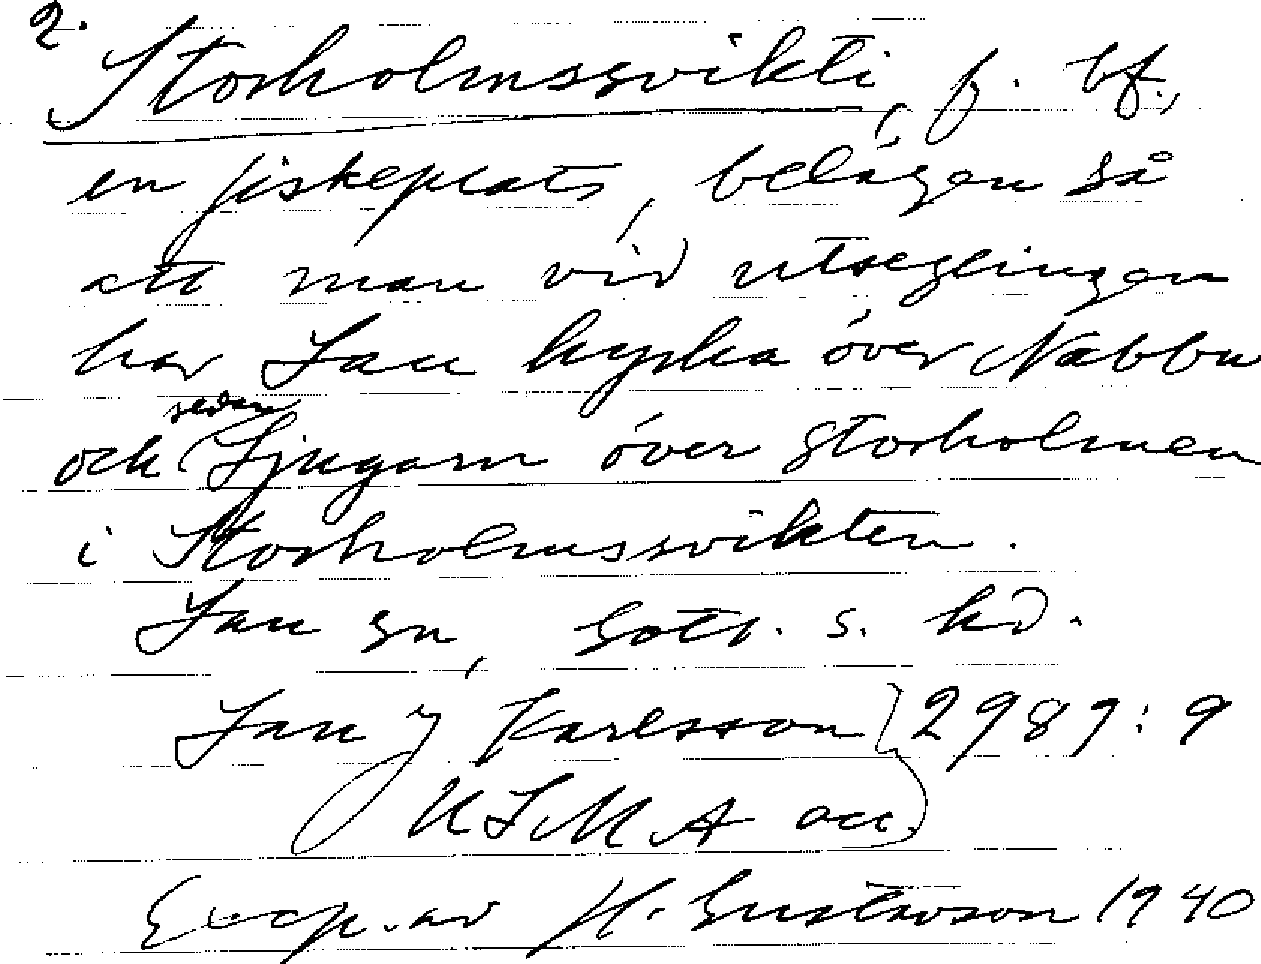 2.
Storholmssvikti, f. bf.,
en fiskeplats, belägen så
att man vid utseglingen
har Lau kyrka över Nabbu
och sedan Ljugarn över Storholmen
i Storholmssvikten.
Lau sn, Gotl. s. hd.
Lau J Karlsson 2989:9
ULMA acc.
Excp. av H. Gustavson 1940